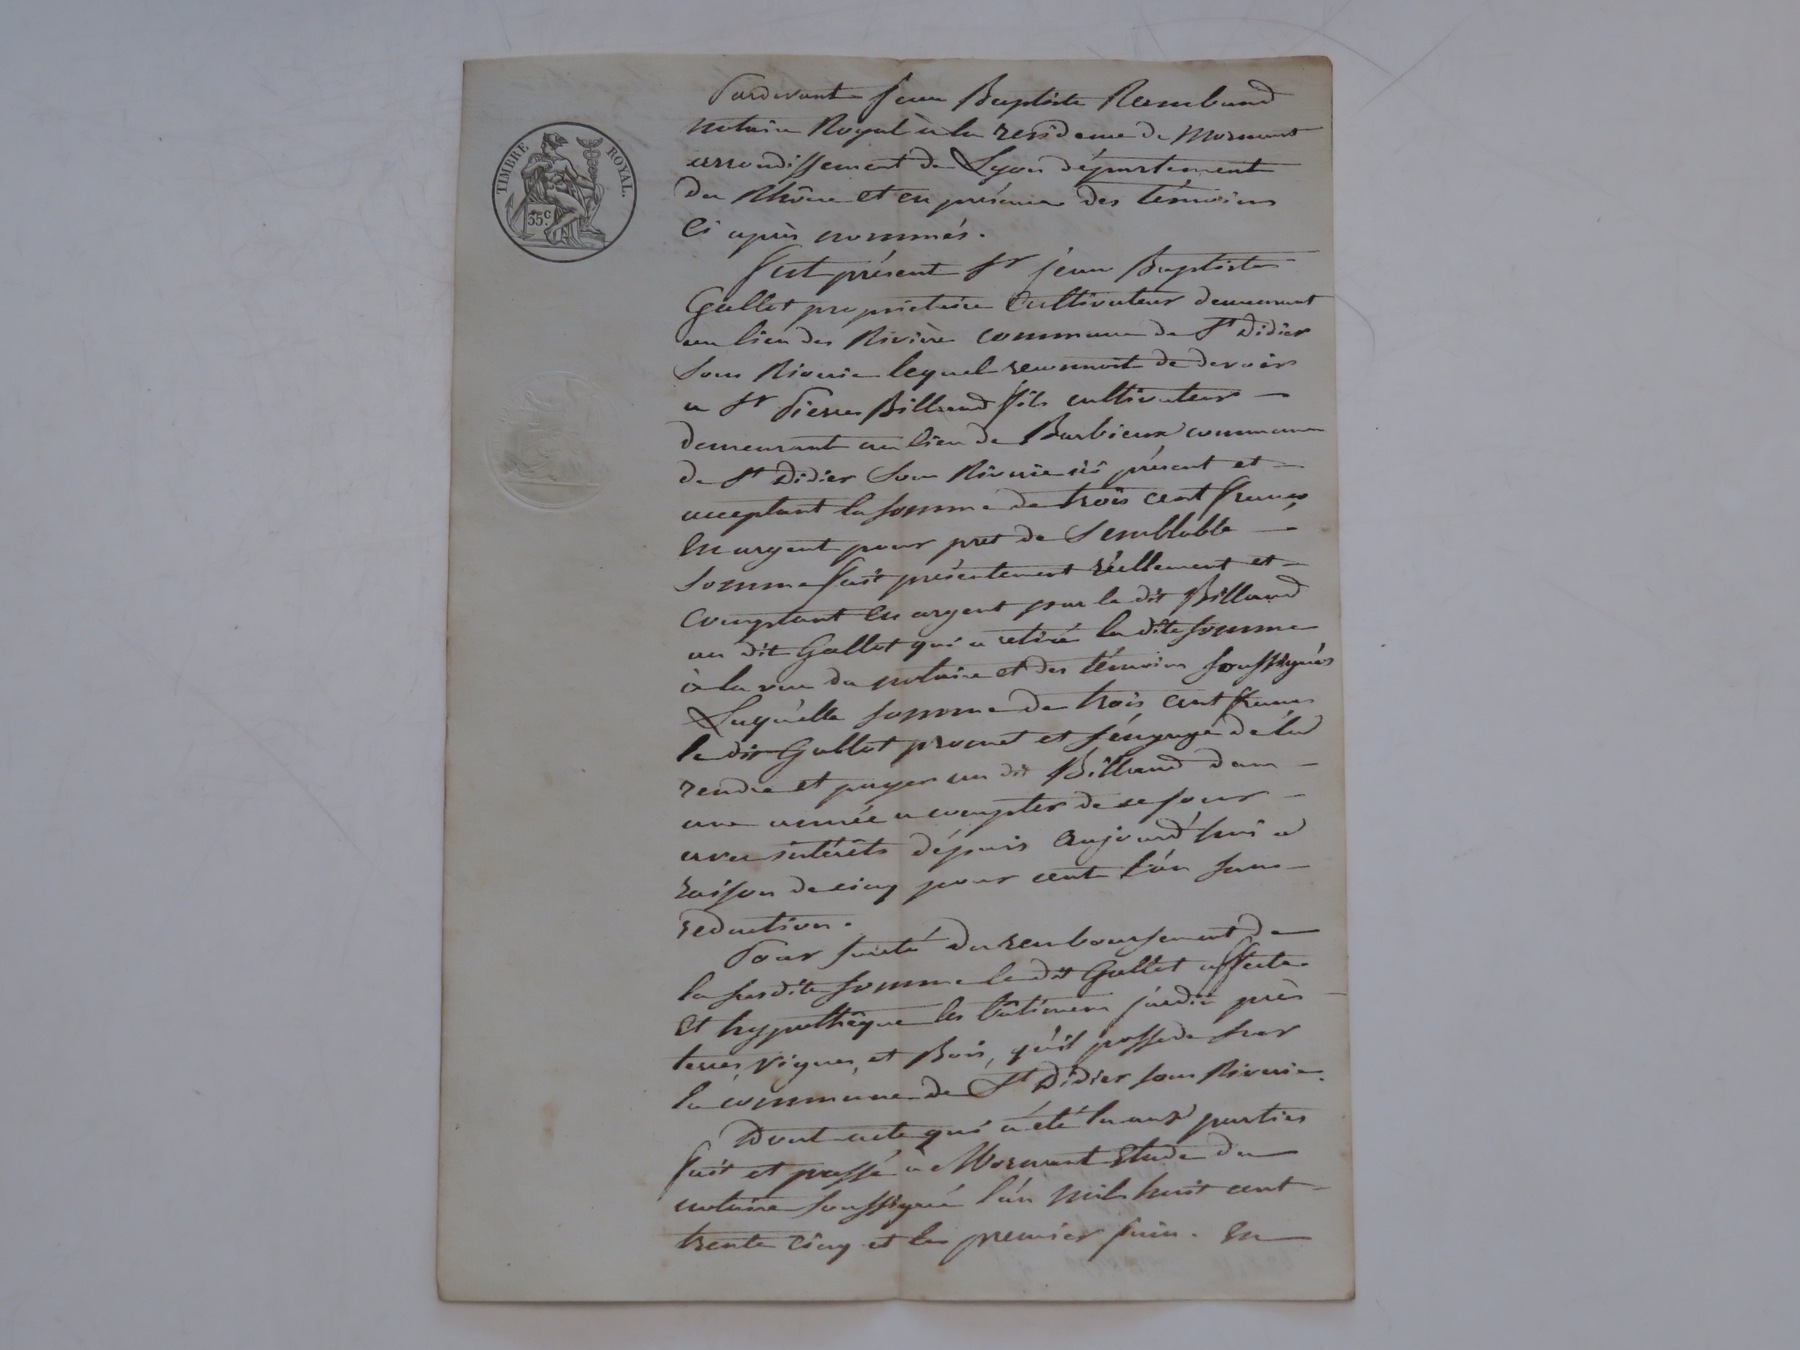 TIMBRE ROYAL.
35c
Pardevant Jean Baptiste Rambaud
notaire Royal à la residence de Mornant
arrondissement de Lyon département
du Rhône et en présence des témoins
Ci après nommés.
fut présent Sr jean Baptiste
Gallet proprietaire Cultivateur demeurant
au lieu des Rivière commune de St Didier
Sous Riverie lequel reconnoit de devoir
a Sr Pierre Billaud fils cultivateur
demeurant au lieu de Barbieux commune
de St Didier Sous Riverie ici présent et
acceptant la somme de trois cent francs
En argent pour pret de Semblable
Somme fait présentement réellement et
comptant En argent par le dit Billaud
au dit Gallet qui a retiré la dite somme
à la vue du notaire et des témoins soussignés
Laquelle somme de trois cent francs
le dit Gallet promet et s'éngage de la
rendre et payer au dit Billaud dans
une année a compter de ce jour
avec intérêts dépuis aujourd'hui a
raison de cinq pour cent l'an sans
reduction.
Pour sureté du remboursement de
la susdite somme le dit Gallet affecte
Et hypothèque les bâtimens jardin près
terres, vignes, et Bois, qu'il possede sur
la commune de St Didier sous Riverie.
Dont acte qui a été lu aux parties
fait et passé à Mornant Etude du
notaire soussigné l'an mil huit cent
trente cinq et le premier juin. En